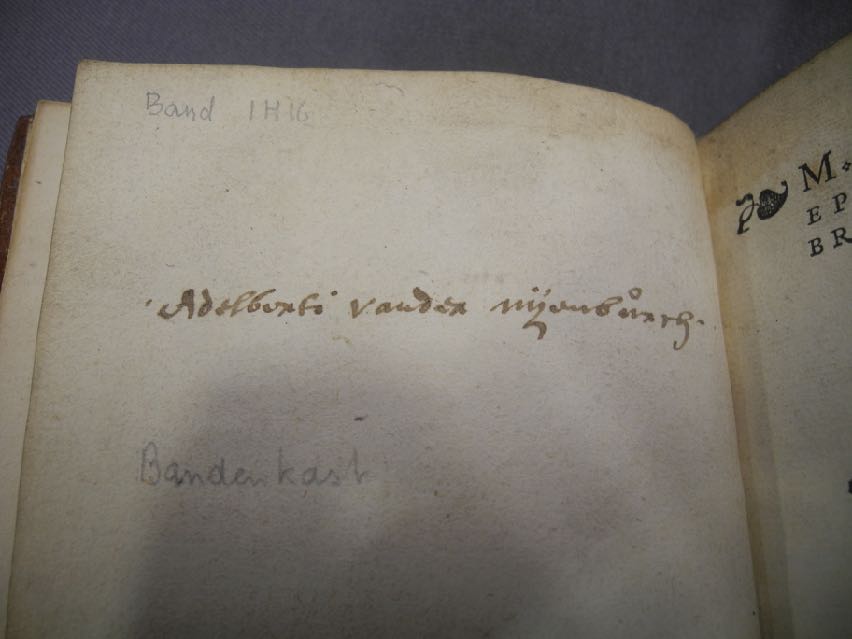 Band 1 H 16
Adelberti vander nijenbůrch.
Bandenkast
M.
EP
BR